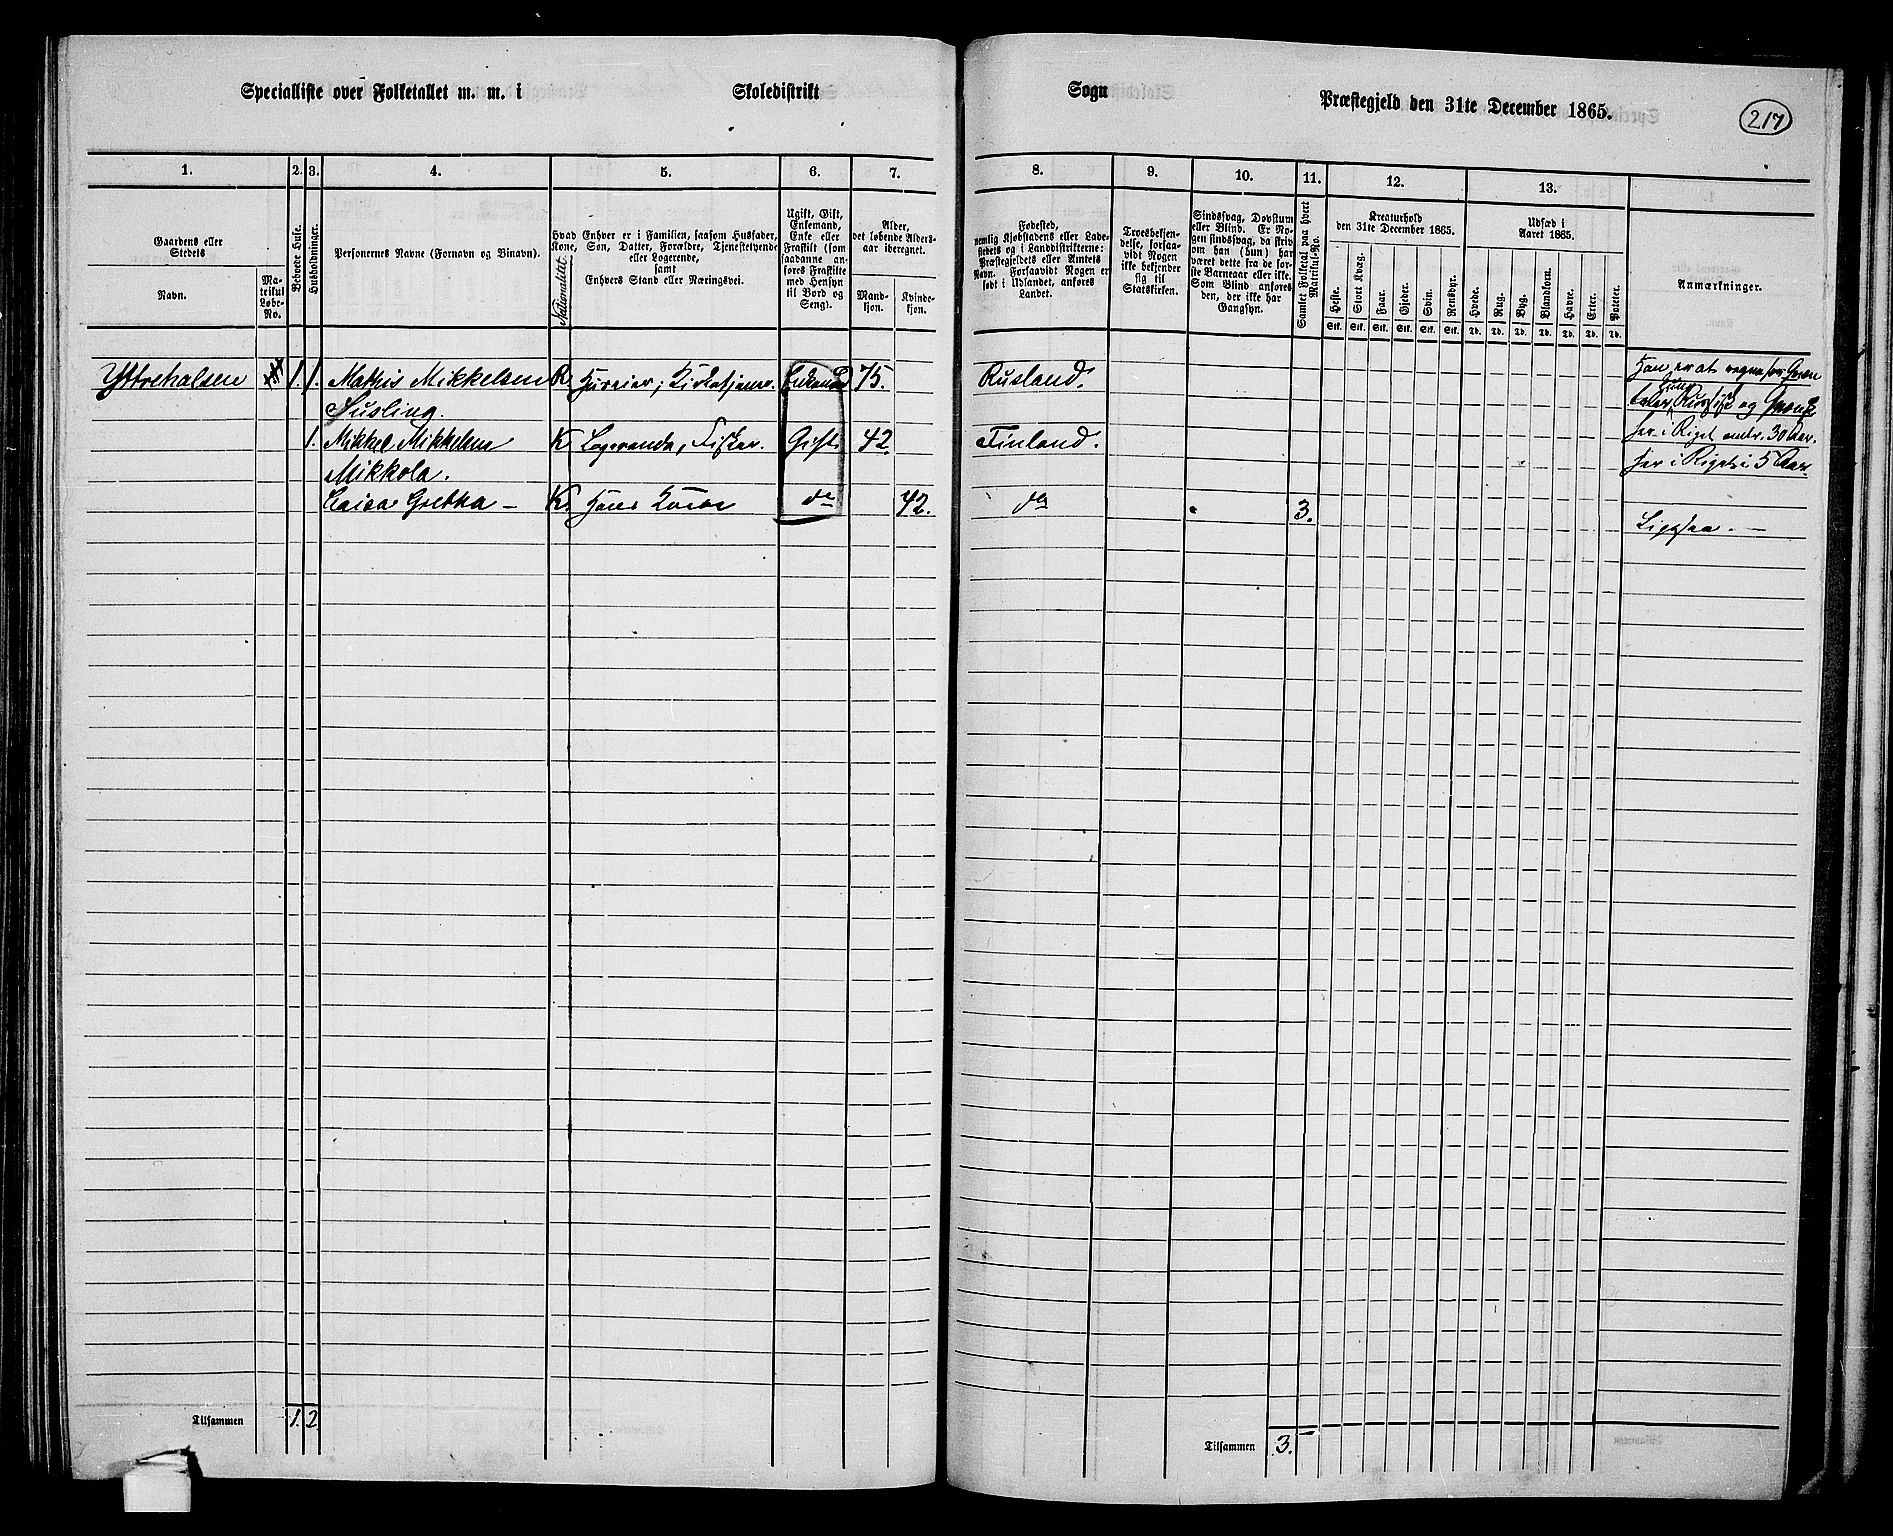 Specialliste over Folketallet m. m. i Skoledistrikt Sogn Præstegjeld den 31te December 1865.
217
1. 2. 3. 4. 5. 6. 7. 8. 9. 10. 11. 12. 13.
Gaardens eller Stedets
Navn.
Matrikul Løbe-No.
Beboede Huse.
Husholdninger.
Personernes Navne (Fornavn og Binavn).
Nationalitet
Hvad Enhver er i Familien, saasom Husfader, Kone, Søn, Datter, Forældre, Tjenestetyende eller Logerende,
samt
Enhvers Stand eller Næringsvei.
Ugift, Gift, Enkemand, Enke eller Fraskilt (som saadanne anføres Fraskilte med Hensyn til Bord og Seng).
Alder, det løbende Aldersaar iberegnet.
Mandkjøn.
Kvindekjøn.
Fødested, nemlig Kjøbstadens eller Ladestedets og i Landdistrikterne: Præstegjeldets eller Amtets Navn. Forsaavidt Nogen er født i Udlandet, anføres Landet.
Troesbekjendelse, forsaavidt Nogen ikke bekjender sig til Statskirken.
Sindssvag, Døvstum eller Blind. Er Nogen sindssvag, da skriv om han (hun) har været dette fra de første Barneaar eller ikke. Som Blind anføres den, der ikke har Gangsyn.
Samlet Folketal paa hvert Matrikul-No.
Kreaturhold den 31te December 1865.
Heste. Stort Kvæg. Faar. Gjeder. Svin. Rensdyr.
Stk. Stk. Stk. Stk. Stk. Stk.
Udsæd i Aaret 1865.
Hvede. Rug. Byg. Blandkorn. Havre. Erter. Poteter.
Td. Td. Td. Td. Td. Td. Td.
Anmærkninger.
Yttrehalsen 1. 1. Mathis Mikkelsen 75. Rusland. Han er at regne for
Susling. Russisk og
1. Mikkel Mikkelsen K Logerende, Fisker. Gift 42. Finland. her i Riget omtr. 30 Aar.
Mikkola. her i Riget i 5 Aar
Caisa Gretha K. Hans Kone do 42. do 3.
Tilsammen 1. 2
Tilsammen 3.